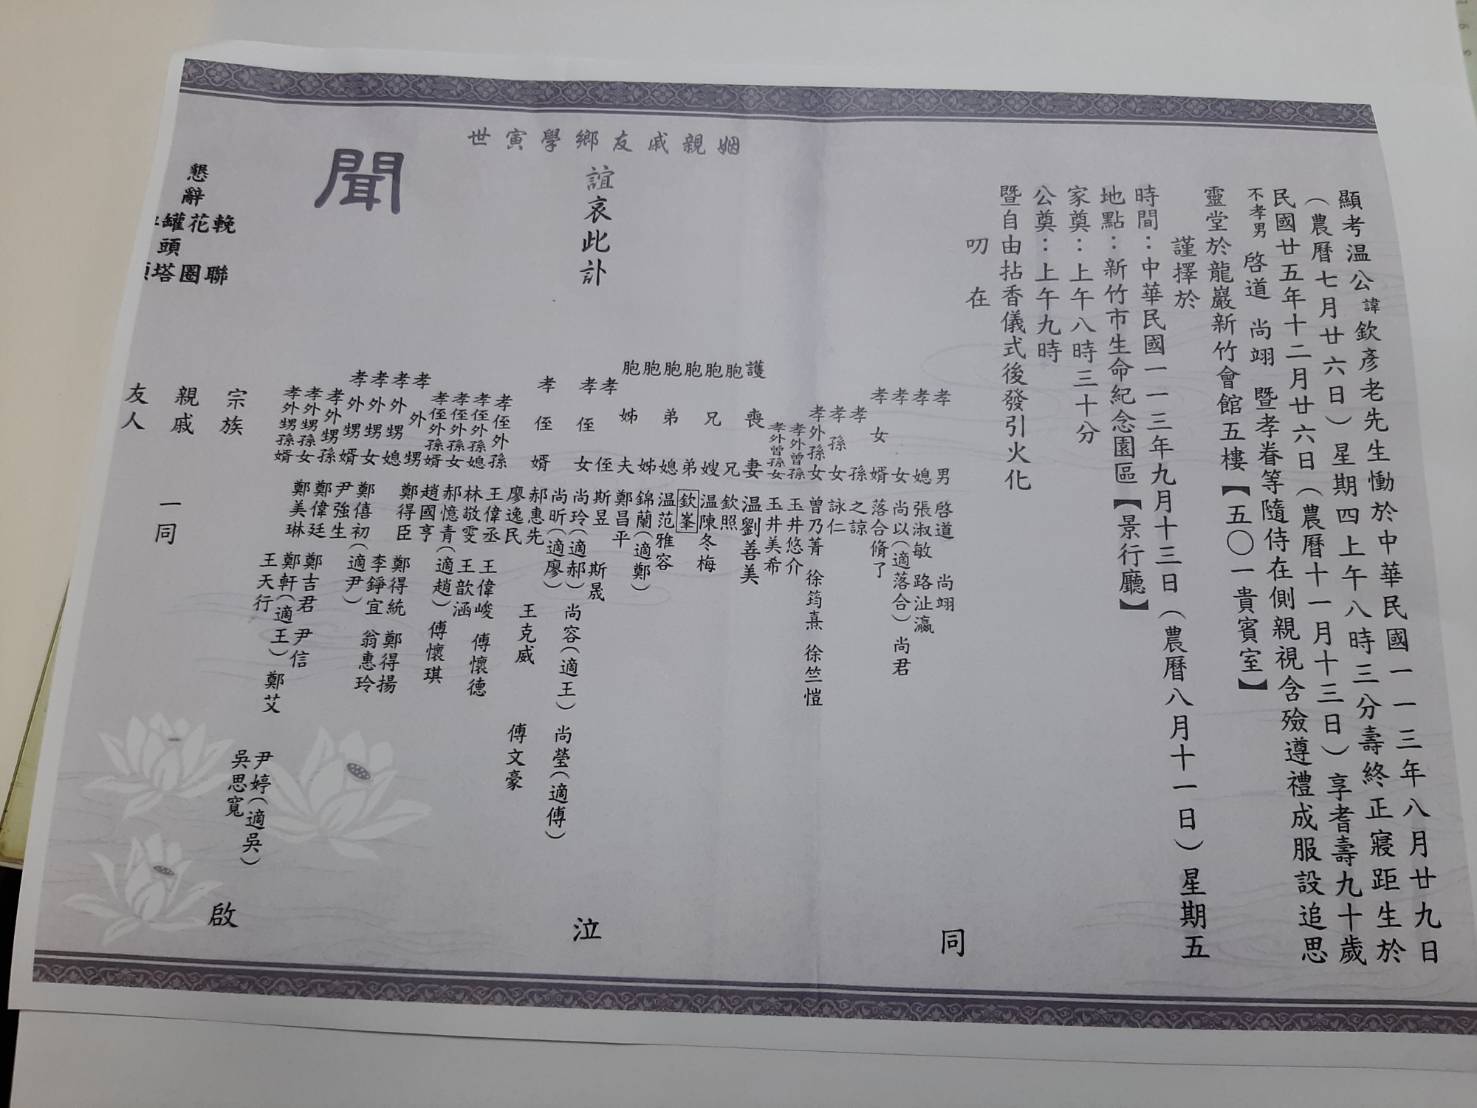 顯考温公諱欽彥老先生慟於中華民國一一三年八月廿九日
（農曆七月廿六日）星期四上午八時三分壽終正寢距生於
民國廿五年十二月廿六日（農曆十一月十三日）享耆壽九十歲
不孝男 啓道 尚翊 暨孝眷等隨侍在側親視含殮遵禮成服設追思
靈堂於龍巖新竹會館五樓【五〇一貴賓室】
謹擇於
時間：中華民國一一三年九月十三日（農曆八月十一日）星期五
地點：新竹市生命紀念園區【景行廳】
家奠：上午八時三十分
公奠：上午九時
暨自由拈香儀式後發引火化
叨在
孝男 啓道 尚翊
孝媳 張淑敏 路沚瀛
孝女 尚以（適落合） 尚君
孝女婿 落合脩了
孝孫 之諒
孝孫女 詠仁
孝外孫女 曾乃菁 徐筠熹 徐竺愷
孝外曾孫 玉井悠介
孝外曾孫女 玉井美希
護喪妻 温劉善美
胞兄 欽照
胞兄嫂 温陳冬梅
胞弟 欽峯
胞弟媳 温范雅容
胞姊 錦蘭（適鄭）
胞姊夫 鄭昌平
孝侄 斯昱 斯晟
孝侄女 尚玲（適郝） 尚容（適王） 尚瑩（適傅）
尚昕（適廖）
孝侄婿 郝惠先 王克威 傅文豪
廖逸民
孝侄外孫 王偉丞 王偉峻 傅懷德
孝侄外孫媳 林敬雯 王歆涵
孝侄外孫女 郝憶青（適趙） 傅懷琪
孝侄外孫婿 趙國亨
孝外甥 鄭得臣 鄭得統 鄭得揚
孝外甥媳 李錚宜 翁惠玲
孝外甥女 鄭僖初（適尹）
孝外甥婿 尹強生
孝外甥孫 鄭偉廷 鄭吉君 尹信
孝外甥孫女 鄭美琳 鄭軒（適王） 鄭艾 尹婷（適吳）
孝外甥孫婿 王天行 吳思寬
同
泣
啟
世寅學鄉友戚親姻
誼哀此訃
聞
宗族
親戚
友人
一同
懇辭
輓花罐
頭
聯圈塔